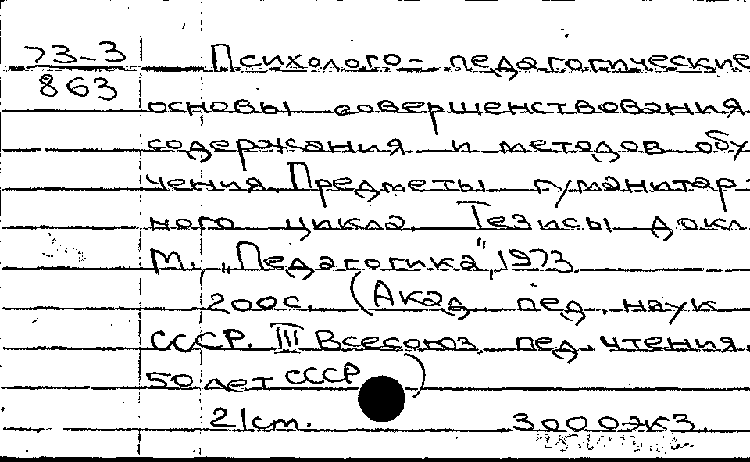 73-3
863
Психолого- педагогические
основы совершенствования
содержания и методов обу
чения. Предметы гуманитар-
ного цикла. Тезисы докл.
М., "Педагогика", 1973.
200с. (Акад. пед. наук
СССР. III Всесоюз. пед. чтения.
50 лет СССР)
21см. 3000экз.